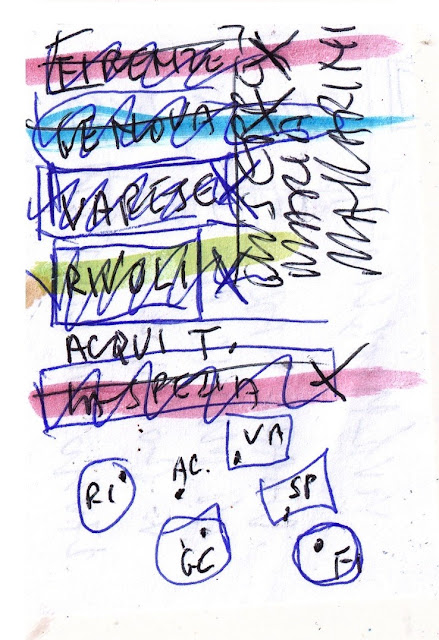 FIRENZE
GENOVA
VARESE
RIVOLI
ACQUI T.
LA SPEZIA
VA
AC.
RI
SP
GC
FI